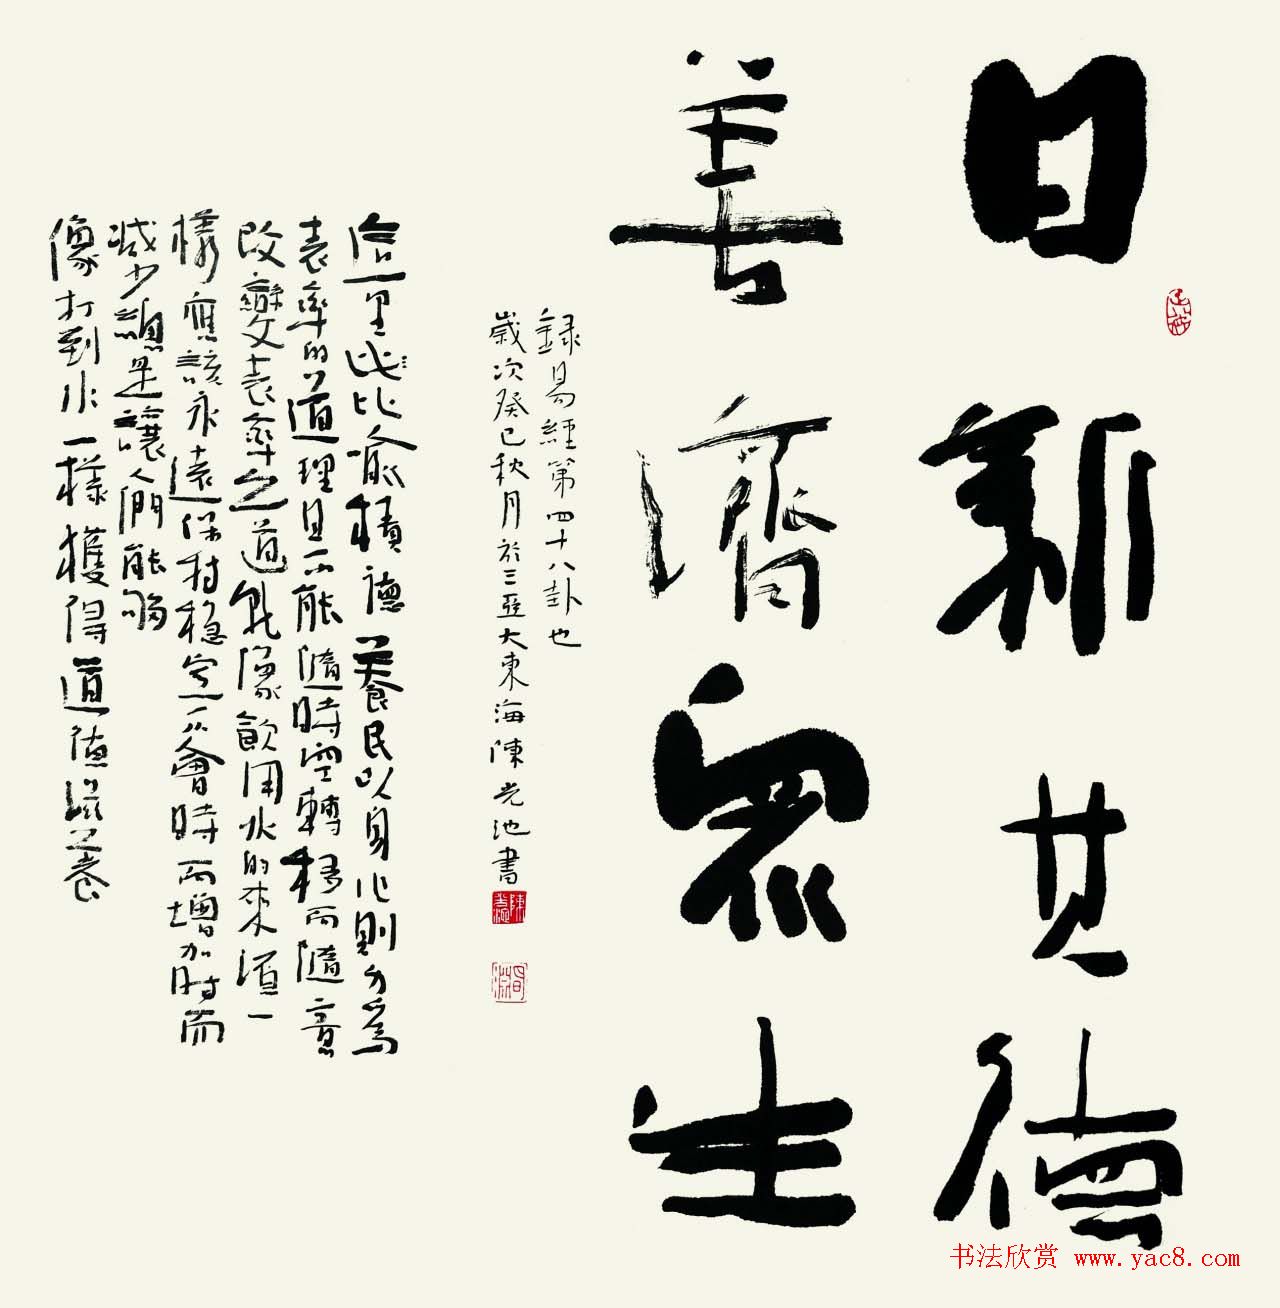 日新其德
善濟眾生
錄易經第四十八卦也
歲次癸巳秋月於三亞大東海陳光池書
這里比喻積德養民以身作則分為
表率的道理且不能隨時空轉移而隨意
改變文表率之道就像飲用水的來源一
樣應該永遠保持穩定不會時而增加時而
減少總是讓人們能夠
像打到水一樣獲得道德滋養
书法欣赏 www.yac8.com